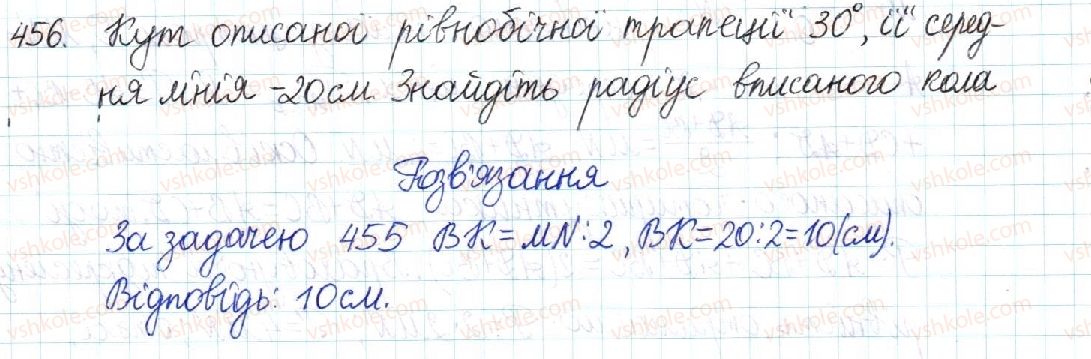 456. Кут описаної рівнобічної трапеції 30°, її серед-
ня лінія -20см Знайдіть радіус вписаного кола
Розв'язання
За задачею 455 BK=MN:2, BK=20:2=10(см).
Відповідь: 10см.